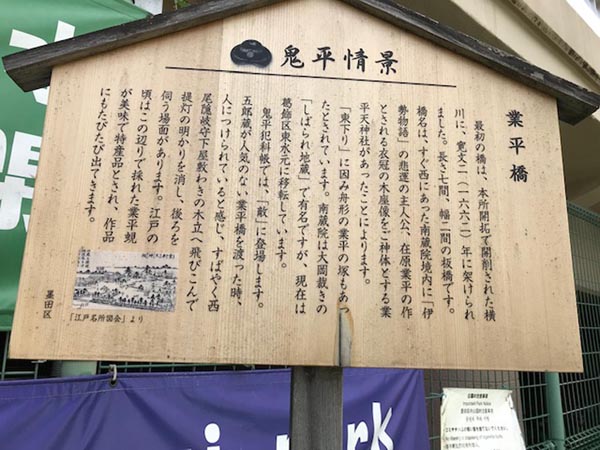 鬼平情景
業平橋
最初の橋は、本所開拓で開削された横
川に、寛文二(一六六二)年に架けられ
ました。長さ七間、幅二間の板橋です。
橋名は、すぐ西にあった南蔵院境内に「伊
勢物語」の悲運の主人公、在原業平の作
とされる衣冠の木座像をご神体とする業
平天神社があったことによります。
「東下り」に因み舟形の業平の塚もあっ
たとされています。南蔵院は大岡裁きの
「しばられ地蔵」で有名ですが、現在は
葛飾区東水元に移転しています。
鬼平犯科帳では、「敵」に登場します。
五郎蔵が人気のない業平橋を渡った時、
人につけられていると感じ、すばやく西
尾隠岐守下屋敷わきの木立へ飛びこんで
提灯の明かりを消し、後ろを
伺う場面があります。江戸の
頃はこの辺りで採れた業平蜆
が美味で特産品とされ、作品
にもたびたび出てきます。
「江戸名所図会」より
墨田区
Important Park Notice
park